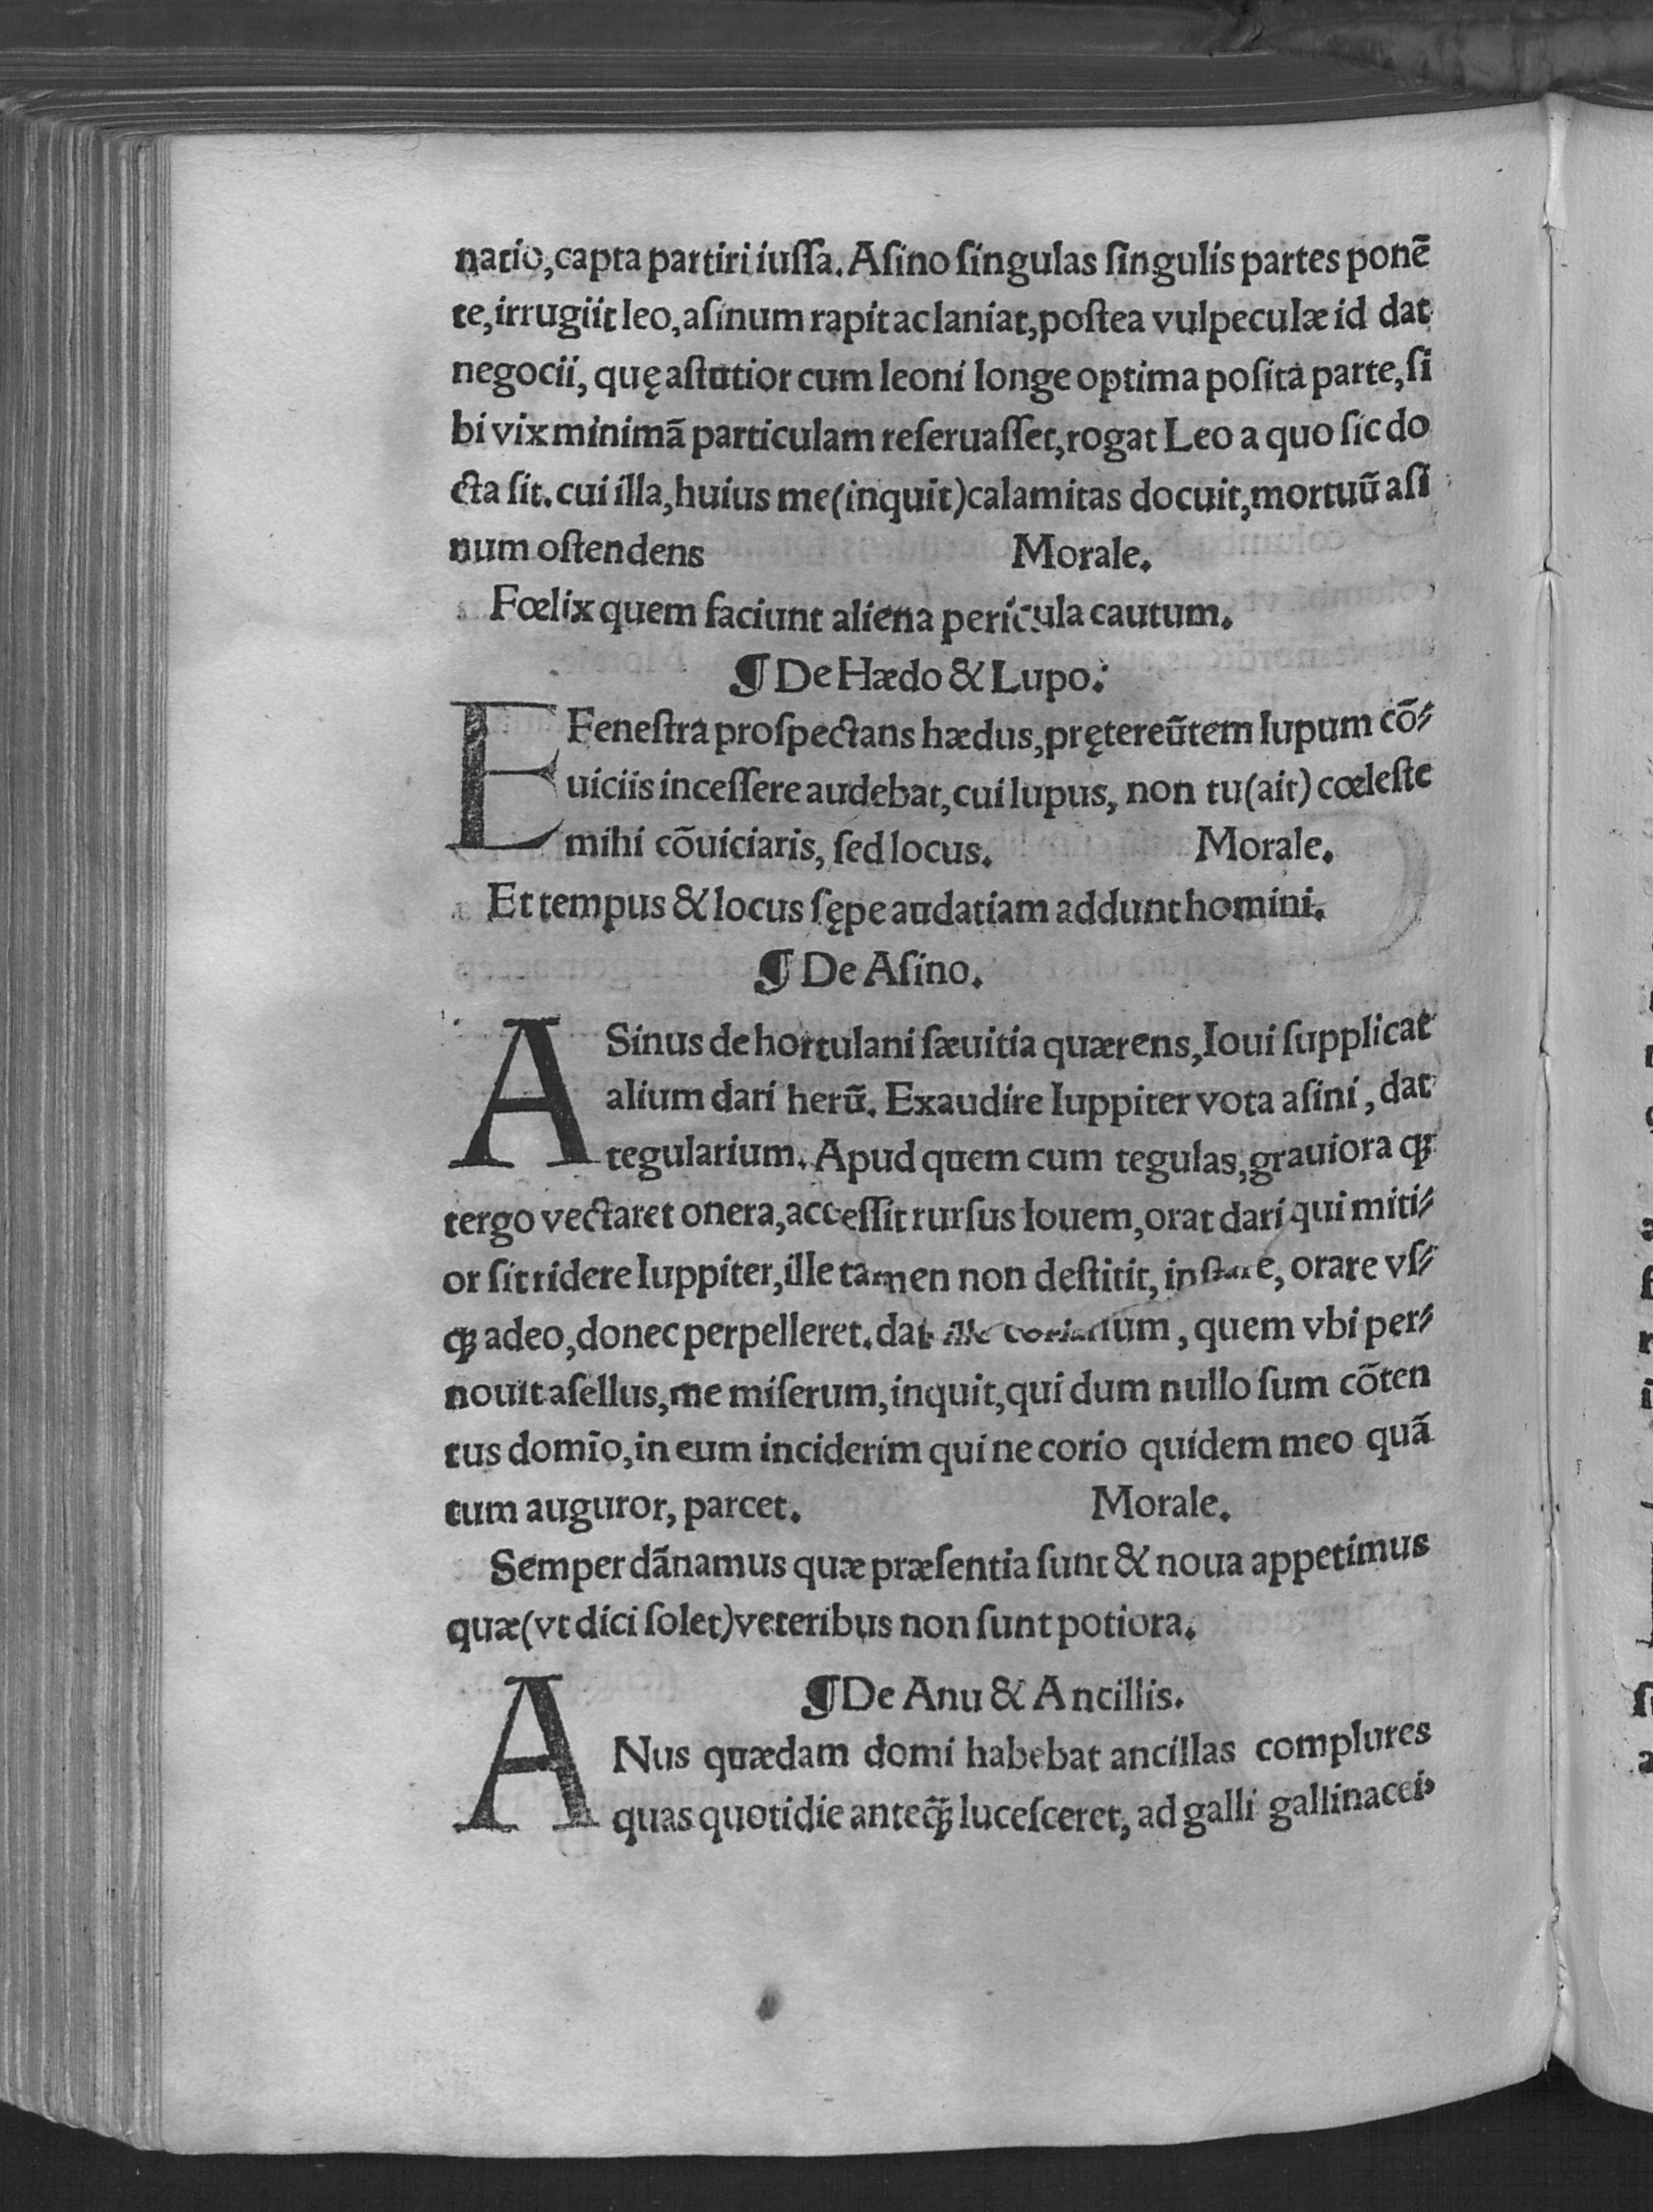 natio,capta partiri iuſſa. Aſino ſingulas ſingulis partes ponē
te, irrugiit leo, aſinum rapit ac laniat, poſtea vulpeculæ id dat
negocii, quę aſtutior cum leoni longe optima poſita parte, ſi
bi vix minimã particulam reſeruaſſet, rogat Leo a quo ſic do
cta ſit. cui illa, huius me(inquit)calamitas docuit, mortuũ aſi
num oſtendens Morale.
Fœlix quem faciunt aliena pericula cautum.
¶ De Hædo & Lupo.
E Feneſtra proſpectans hædus, prętereũtem lupum cõ⸗
uiciis inceſſere audebat, cui lupus, non tu(ait) cœleſte
mihi cõuiciaris, ſed locus. Morale.
Et tempus & locus ſępe audatiam addunt homini.
¶ De Aſino.
ASinus de hortulani ſæuitia quærens, Ioui ſupplicat
alium dari herũ. Exaudire Iuppiter vota aſini, dat
tegularium. Apud quem cum tegulas, grauiora ꝗꝫ
tergo vectaret onera, acceſſit rurſus Iouem, orat dari qui miti⸗
or ſit ridere Iuppiter, ille tamen non deſtitit, inſtare, orare vſ⸗
ꝗꝫ adeo, donec perpelleret. dat ille coriarium, quem vbi per⸗
nouit aſellus, me miſerum, inquit, qui dum nullo ſum cõten
tus domĩo, in eum inciderim qui ne corio quidem meo quã
tum auguror, parcet. Morale.
Semper dãnamus quæ præſentia ſunt & noua appetimus
quæ(vt dici ſolet)veteribus non ſunt potiora.
¶ De Anu & Ancillis.
ANus quædam domi habebat ancillas complures
quas quotidie anteꝗ̃ꝫ luceſceret, ad galli gallinacei